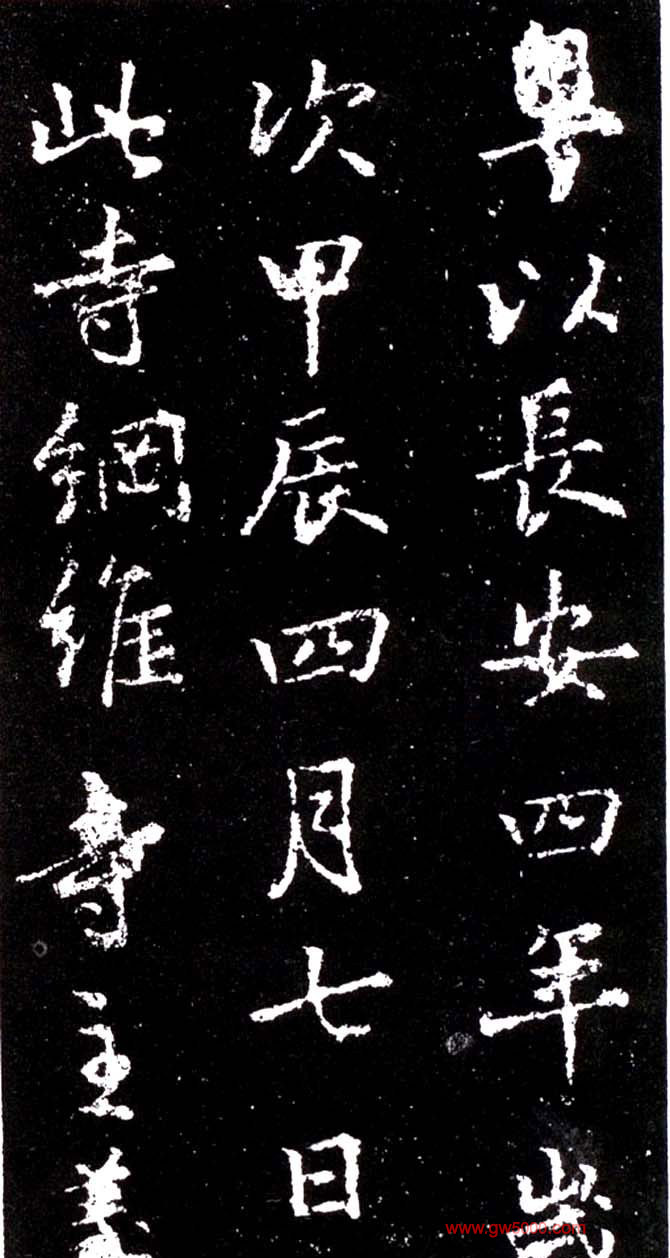 粤以長安四年歲
次甲辰四月七日
此寺綱維寺主
www.gw5000.com